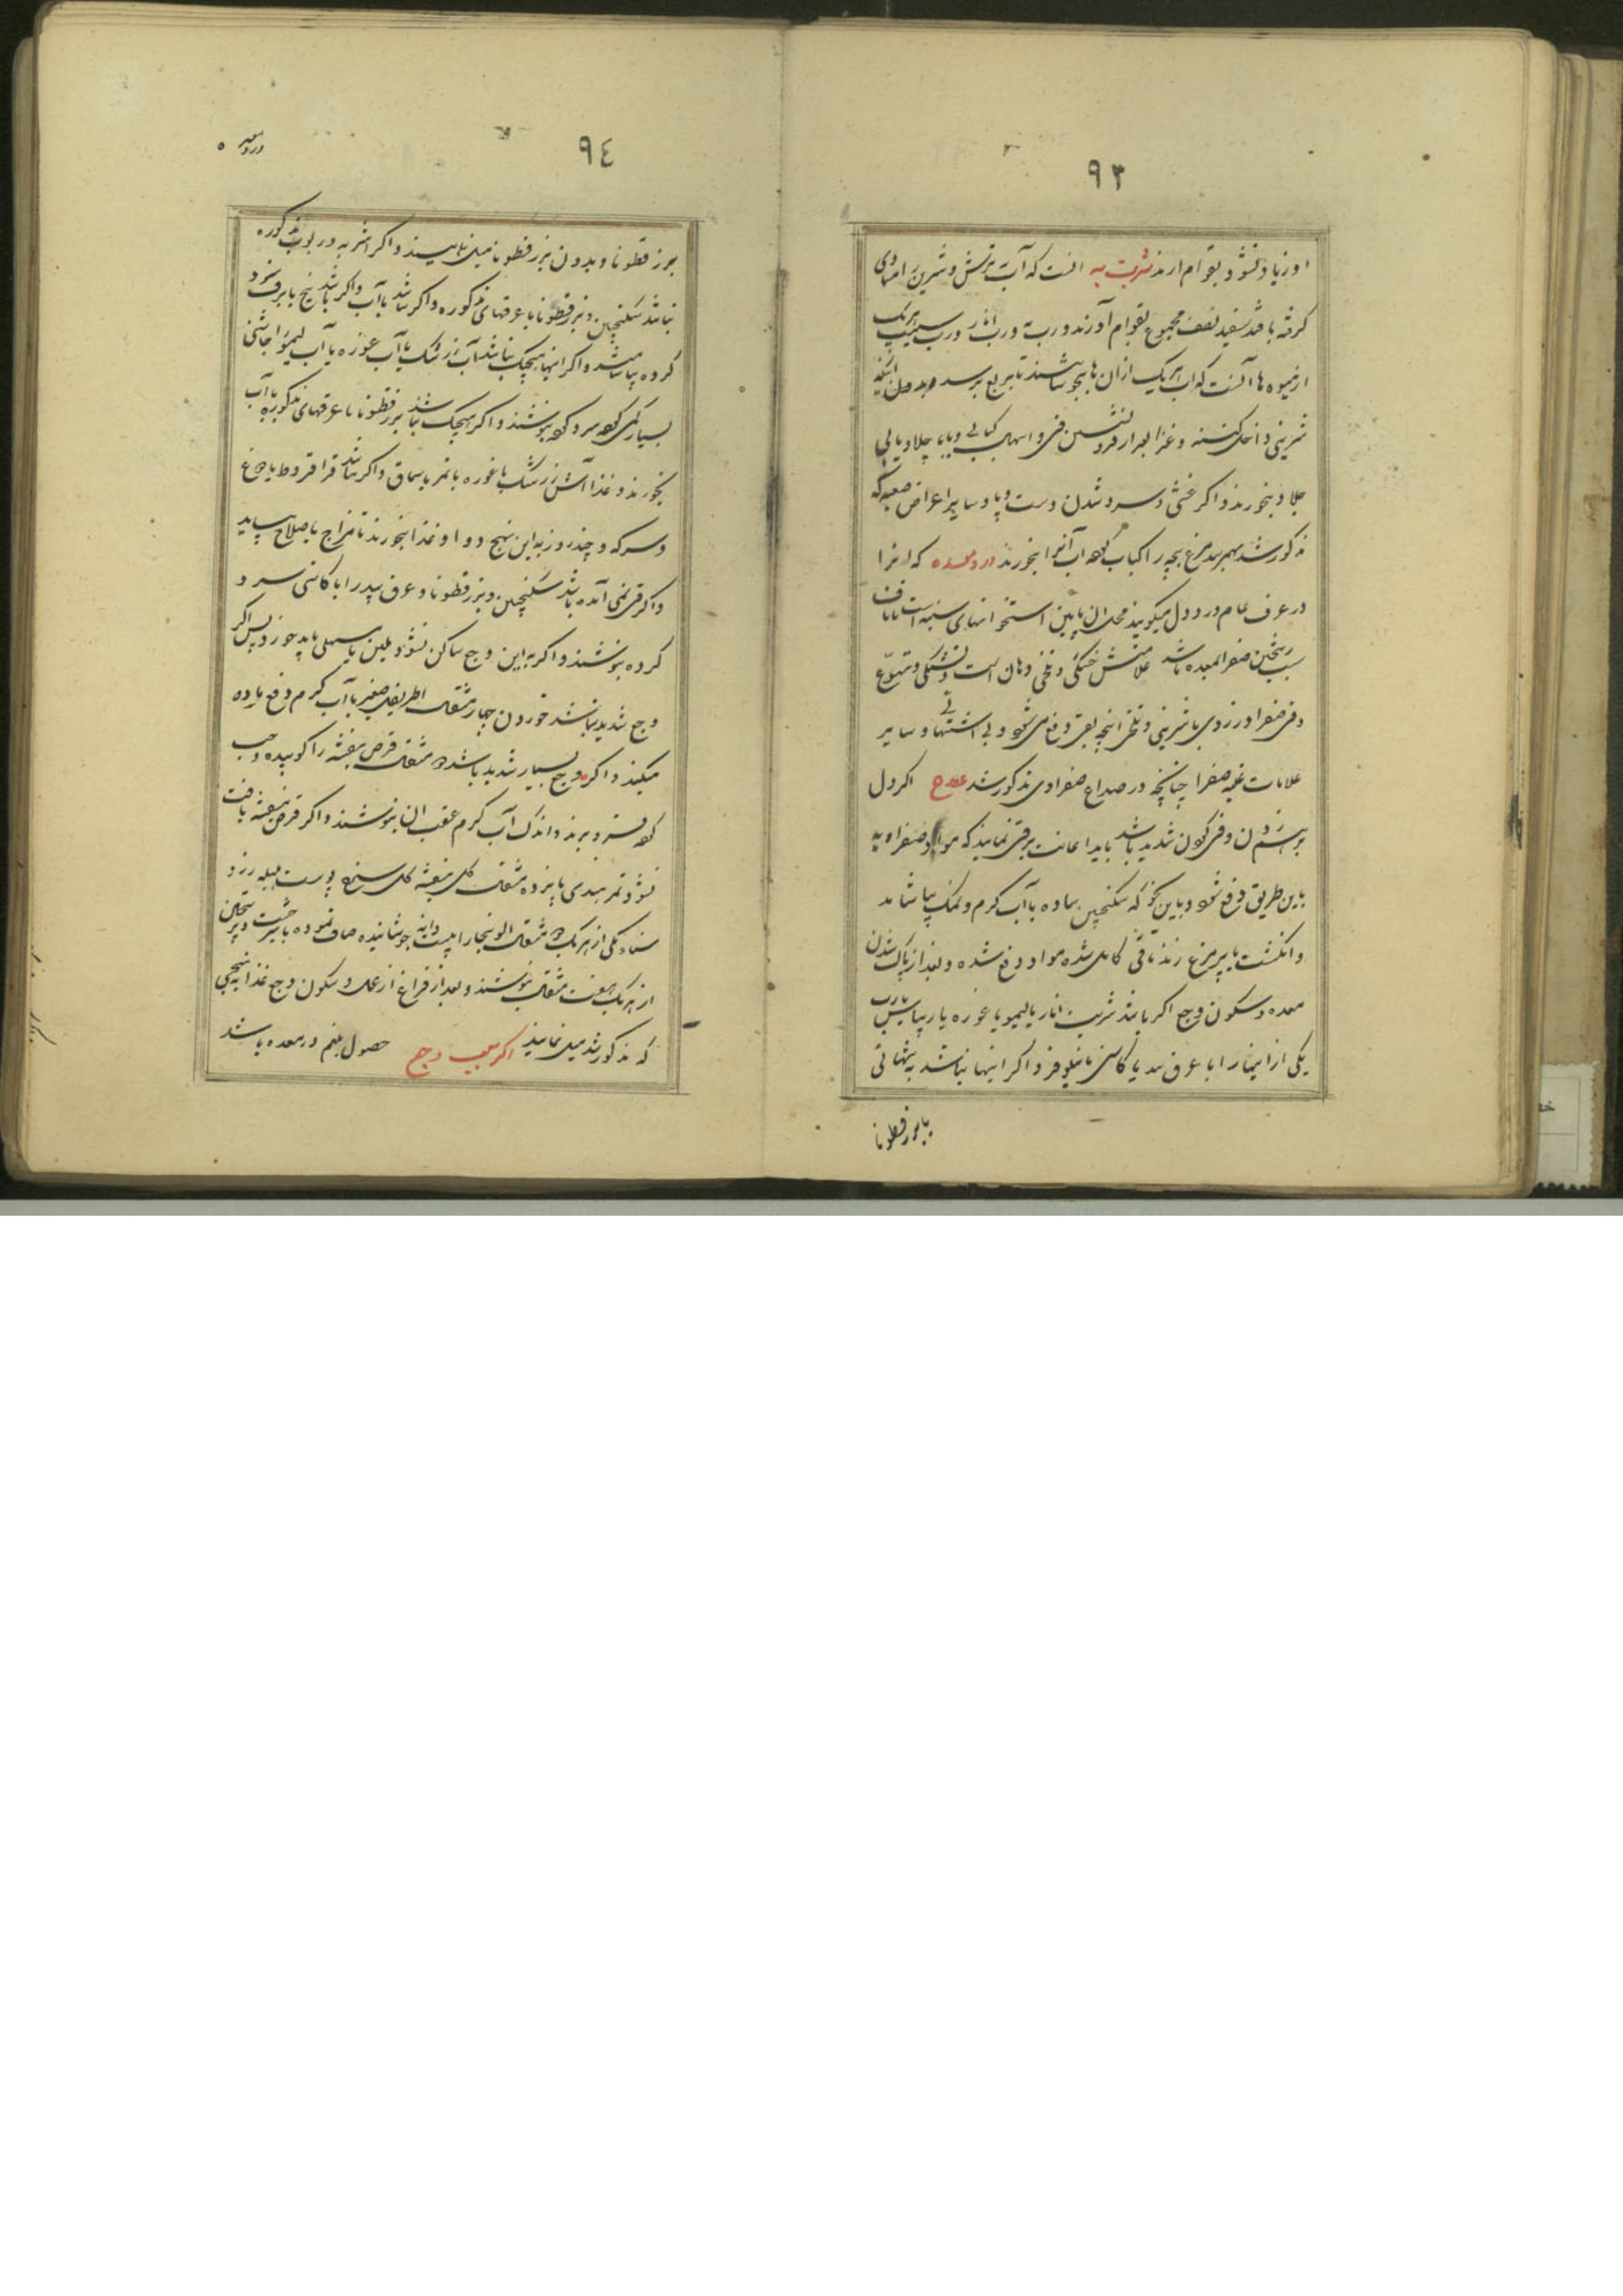 ۹۳
او زیاد نشود بقوام ارند شربت به انست که آب به ترش و شیرین را مساوی
گرفته با قند سفید نصف مجموع بقوام آورند و رب به و رب انار و رب سیب هر یک
ازمیوه ها آنست که اب هر یک از ان ها بجوشانند تا بربع برسد و بدون اینکه
شیرینی داخل کنند و غذا بعد از فرو نشستن قی و اسهال کباب
جلاو بخورند و اگر غشی و سرد شدن دست و پا و سایر اعراض صعبه که
مذکور شد بهم رسد مرغ بچه را کباب کرده اب آنرا بخورند درد معده که انرا
در عرف عام درد دل میگویند محل ان پایین استخوانهای سینه است تا ناف
سبب ریختن صفرا بمعده باشد علامتش خشکی و تلخی دهان است و تشنگی و تهوع
و قی صفرا و زردی یا شیرینی و تلخی انچه بقی دفع می شود و بی اشتهایی و سایر
علامات غلبه صفرا چنانچه در صداع صفراوی مذکور شد علاج اگر دل
برهم زدن و قی کردن شدید باشد باید اعانت بر قی نمایند که مواد صفراویه
باین طریق دفع شود و باین نحو که سکنجبین ساده با آب گرم و نمک بیاشامند
و انگشت یا پر مرغ زنند تا قی کامل شده مواد دفع شده و بعد از پاک شدن
معده و سکون وجع اگر باشد شربت انار یا لیمو یا غوره یا ریباس یا رب
یکی از اینها را با عرق بید یا کاسنی یا نیلوفر و اگر اینها نباشد به تنهایی
با بزرقطونا
۹٤
درد معده
بزر قطونا و بدون بزر قطونا میل نمایند و اگر اشربه و ربوب مذکوره
نباشد سکنجبین و بزرقطونا با عرقهای مذکوره و اگر نباشد با آب و اگر باشد یخ یا برف سرد
کرده بیاشامند و اگر اینها هیچیک نباشد آب زرشک یا آب غوره یا آب لیمو را چاشنی
بسیار کمی کرده سرد کرده بنوشند و اگر هیچیک نباشد بزر قطونا با عرقهای مذکوره یا آب
بخورند و غذا آش زرشک یا غوره یا تمر یا سماق و اگر نباشد قراقروط یا دوغ
و سرکه و چند روز به این نهج دوا و غذا بخورند تا مزاج باصلاح بیاید
و اگر قی نمی آمده باشد سکنجبین و بزر قطونا و عرق بید را با کاسنی سرد
کرده بنوشند و اگر به این وجع ساکن نشود ملین یا مسهلی باید خورد پس اگر
وجع شدید نباشد خوردن چهار مثقال اطریفل صغیر با آب گرم دفع ماده
میکند و اگر وجع بسیار شدید باشد مثقال قرص بنفشه را کوبیده و حب
کرده فرو برند و اندک آب گرم عقب ان بنوشند و اگر قرص بنفشه یافت
نشود تمر هندی پانزده مثقال گل بنفشه گل سرخ پوست هلیله زرد
سناء مکی از هر یک مثقال الو بخارا بیست دانه جوشانیده صاف نموده با شیرخشت و ترنجبین
از هر یک هفت مثقال بنوشند و بعد از فراغ از عمل و سکون وجع غذا به نهجی
که مذکور شد میل نمایند اگر سبب وجع حصول بلغم در معده باشد